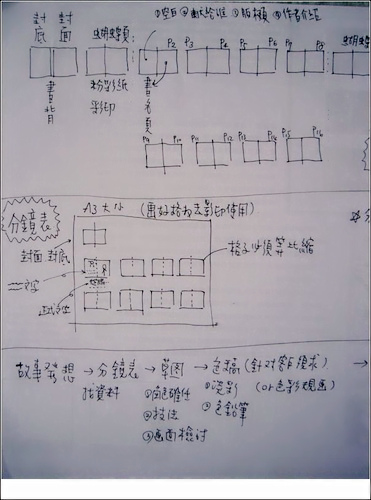 封底 封面
蝴蝶頁
①空白 ②獻給誰 ③版權頁 ④作者介紹
P2 P3 P4 P5 P6 P7 P8
蝴蝶
書背
粉彩紙
彩印
書名頁
P9 P10 P11 P12 P13 P14 P15 P16
分鏡表
A3大小 (畫好格初去影印使用)
封面 封底
格子必須等比縮
故事發想 → 分鏡表 → 草圖 → 色稿 (針對客戶須求)
找資料
①角色確任
②技法
③畫面檢討
①淡彩
②色鉛筆
(or色彩規畫)